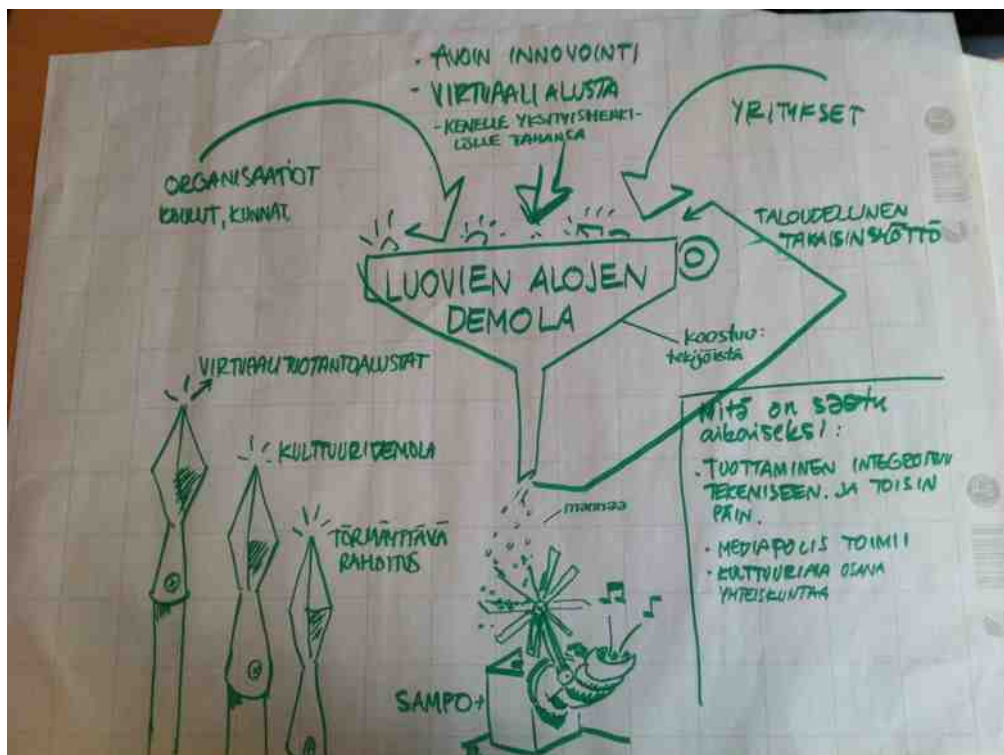 · AVOIN INNOVOINTI
- VIRTUAALI ALUSTA
- KENELLE YKSITYISHENKI-
LÖLLE TAHANSA
YRITYKSET
ORGANISAATIOT
KOULUT, KUNNAT,
TALOUDELLINEN
TAKAISINSYÖTTÖ
LUOVIEN ALOJEN
DEMOLA
koostuu:
tekijöistä
VIRTUAALITUOTANTOALUSTAT
KULTTUURIDEMOLA
TÖRMÄYTTÄVÄ
RAHOITUS
mannaa
Mitä on saatu
aikaiseksi:
· TUOTTAMINEN INTEGROITUU
TEKEMISEEN. JA TOISIN
PÄIN.
· MEDIAPOLIS TOIMII
· KULTTUURIALA OSANA
YHTEISKUNTAA
SAMPO